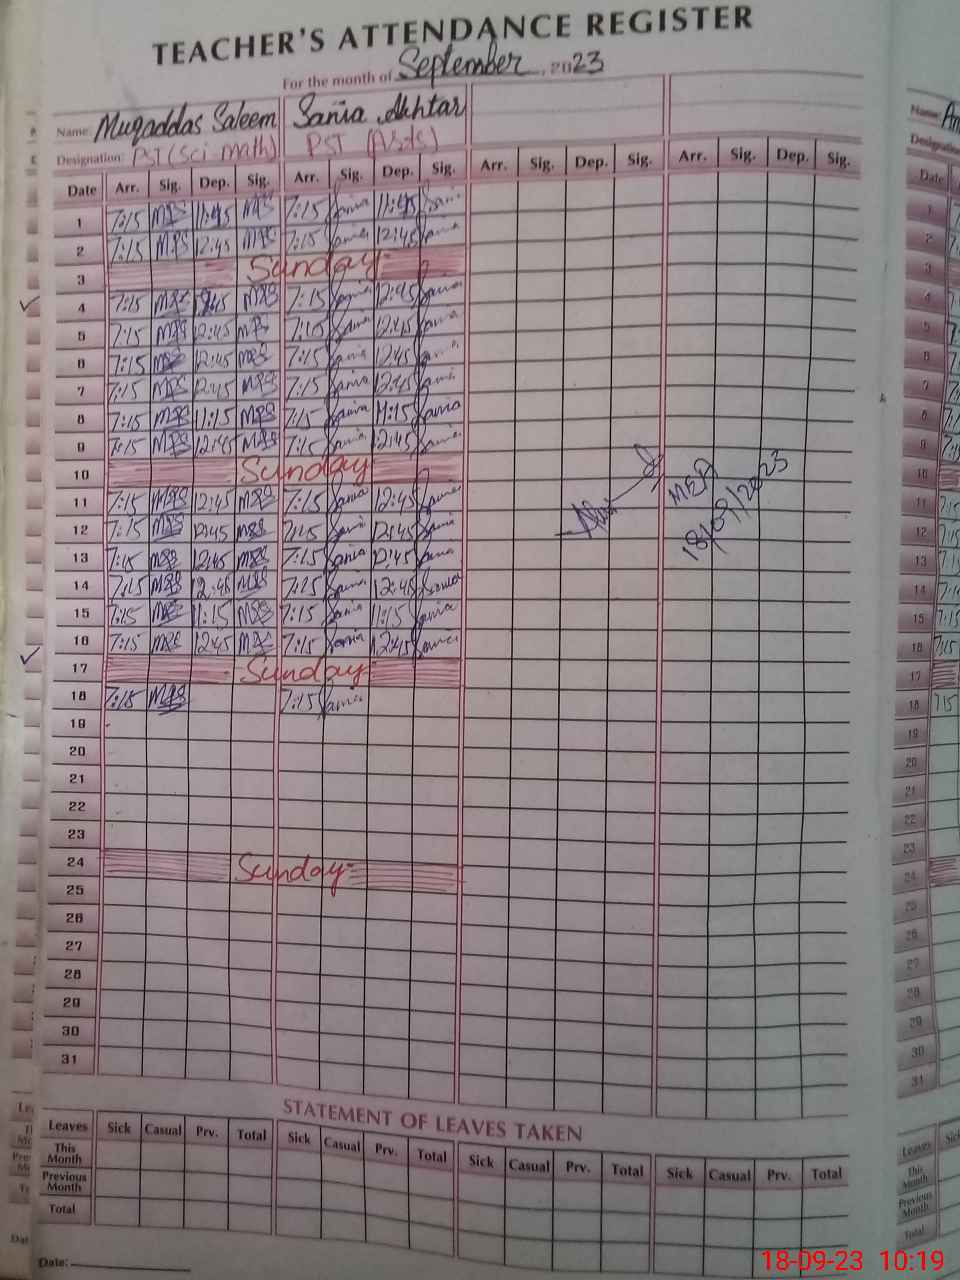 TEACHER'S ATTENDANCE REGISTER
For the month of September, 2023
Name: Muqaddas Saleem Sania Akhtar
Designation: PST (Sci math) PST (Arts)
Date Arr. Sig. Dep. Sig. Arr. Sig. Dep. Sig. Arr. Sig. Dep. Sig. Arr. Sig. Dep. Sig.
1 7:15 MSS 11:45 MSS 7:15 Sania 11:45 Sania
2 7:15 MSS 12:45 MSS 7:15 Sania 12:45 Sania
3 Sunday
4 7:15 MSS 12:45 MSS 7:15 Sania 12:45 Sania
5 7:15 MSS 12:45 MSS 7:15 Sania 12:45 Sania
6 7:15 MSS 12:45 MSS 7:15 Sania 12:45 Sania
7 7:15 MSS 12:45 MSS 7:15 Sania 12:45 Sania
8 7:15 MSS 11:15 MSS 7:15 Sania 11:15 Sania
9 7:15 MSS 12:45 MSS 7:15 Sania 12:45 Sania
10 Sunday
11 7:15 MSS 12:45 MSS 7:15 Sania 12:45 Sania
12 7:15 MSS 12:45 MSS 7:15 Sania 12:45 Sania
13 7:15 MSS 12:45 MSS 7:15 Sania 12:45 Sania
14 7:15 MSS 12:45 MSS 7:15 Sania 12:45 Sania
15 7:15 MSS 11:15 MSS 7:15 Sania 11:15 Sania
16 7:15 MSS 12:45 MSS 7:15 Sania 12:45 Sania
17 Sunday
18 7:15 MSS 7:15 Sania
19
20
21
22
23
24 Sunday
25
26
27
28
29
30
31
MEA
18/09/2023
STATEMENT OF LEAVES TAKEN
Leaves Sick Casual Prv. Total Sick Casual Prv. Total Sick Casual Prv. Total Sick Casual Prv. Total
This Month
Previous Month
Total
Date:
18-09-23 10:19